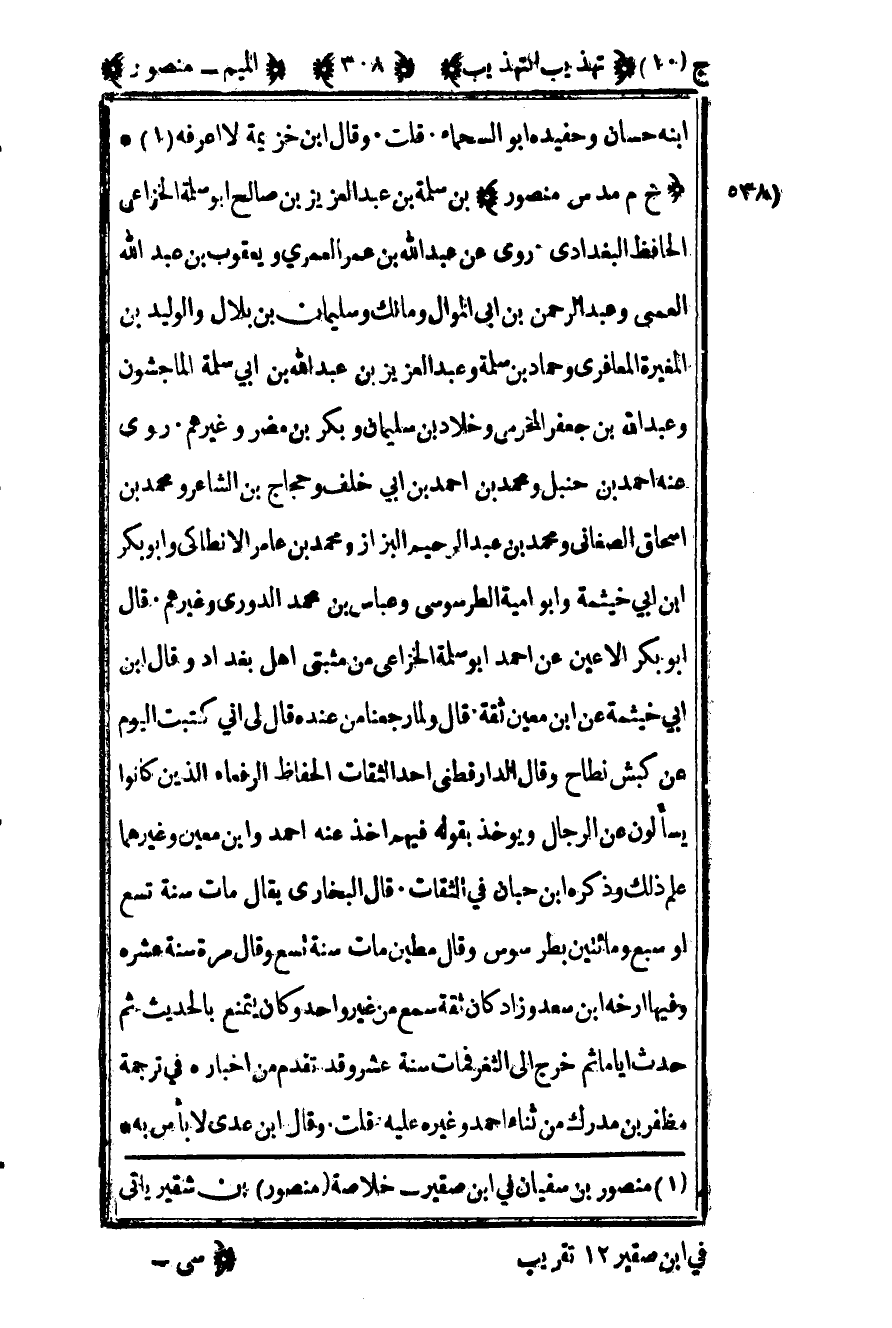 ج (١٠) ﴿ تهذيب التهذيب﴾ ﴿ ٣٠٨ ﴾ ﴿ الميم ـ منصور ﴾
ابنه حسان وحفيده ابو السحماء · قلت · وقال ابن خزيمة لا اعرفه (١) *
﴿ خ م مد س منصور ﴾ بن سلمة بن عبد العزيز بن صالح ابو سلمة الخزاعى
(٥٣٨
الحافظ البغدادى · روى عن عبدالله بن عمر العمري ويعقوب بن عبد الله
العمى وعبد الرحمن بن ابى الموال ومالك وسليمان بن بلال والوليد بن
المغيرة المعافرى وحماد بن سلمة وعبد العزيز بن عبدالله بن ابي سلمة الماجشون
وعبدالله بن جعفر المخرمى وخلاد بن سليمان و بكر بن مضر و غيرهم · روى
عنه احمد بن حنبل ومحمد بن احمد بن ابي خلف وحجاج بن الشاعر و محمد بن
اسحاق الصغانى ومحمد بن عبد الرحيم البزاز ومحمد بن عامر الانطاكى وابو بكر
ابن ابي خيثمة وابو امية الطرسوسى وعباس بن محمد الدورى وغيرهم · قال
ابو بكر الاعين عن احمد ابو سلمة الخزاعى من مثبتى اهل بغداد و قال ابن
ابي خيثمة عن ابن معين ثقة · قال ولما رجعنا من عنده قال لى اني كتبت اليوم
عن كبش نطاح وقال الدارقطنى احد الثقات الحفاظ الرفعاء الذين كانوا
يسألون عن الرجال ويوخذ بقوله فيهم اخذ عنه احمد وابن معين وغيرهما
علم ذلك وذكره ابن حبان في الثقات · قال البخارى يقال مات سنة تسع
او سبع ومائتين بطرسوس وقال مطين مات سنة تسع وقال مرة سنة عشره
وفيها ارخه ابن سعد وزاد كان ثقة سمع من غير واحد وكان يتمنع بالحديث ثم
حدث اياما ثم خرج الى الثغر فمات سنة عشر وقد تقدم من اخباره في ترجمة
مظفر بن مدرك من ثناء احمد وغيره عليه · قلت · وقال ابن عدى لا بأس به *
(١) منصور بن سفيان في ابن صقير ـ خلاصة (منصور) بن شقير ياتى
في ابن صقير ١٢ تقريب ﴿ سى ـ